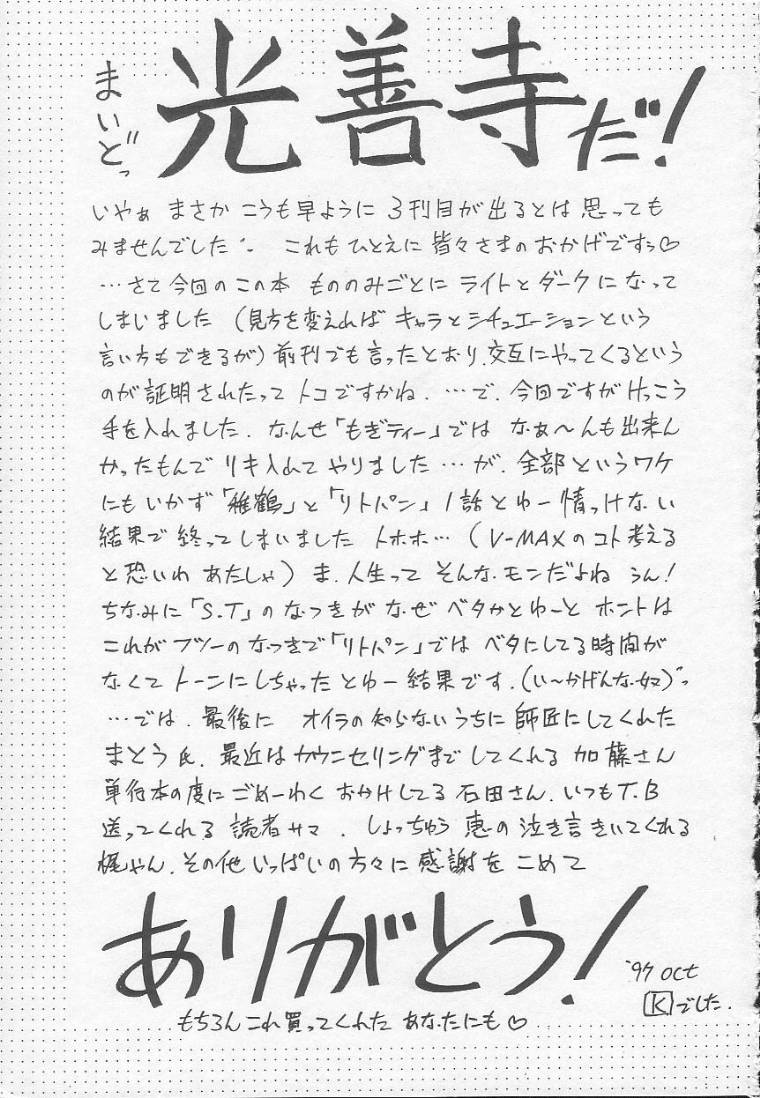 まいどっ
光善寺だ!
いやぁ まさか こうも早ように 3刊目が出るとは思っても
みませんでした これもひとえに皆々さまのおかげですぅ♡
…さて今回のこの本 もののみごとに ライトとダークになって
しまいました (見方を変えれば キャラとシチュエーションという
言い方もできるが) 前刊でも言ったとおり、交互にやってくるという
のが証明されたって トコですかね. …で、今回ですがけっこう
手を入れました. なんせ「もぎティー」では なぁ〜んも出来ん
かったもんで リキ入れて やりました …が、全部というワケ
にもいかず「雅鶴」と「リトパン」1話とゆー情っけない
結果で終ってしまいました トホホ… (V-MAXのコト考える
と恐いわ あたしゃ) ま、人生って そんなモンだよね うん!
ちなみに「S.T」のなつきがなぜ ベタかとゆーと ホントは
これがフツーのなつきで「リトパン」では ベタにしてる時間が
なくてトーンにしちゃったとゆー結果です.(い〜かげんな奴)
…では、最後に オイラの知らないうちに師匠にしてくれた
まとう氏、最近はカウンセリングまでしてくれる加藤さん
単行本の度にごめーわくおかけしてる石田さん、いつもT.B
送ってくれる読者サマ、しょっちゅう恵の泣き言きいてくれる
梶やん、その他いっぱいの方々に感謝をこめて
ありがとう!
'97 oct
Kでした.
もちろんこれ買ってくれた あなたにも♡